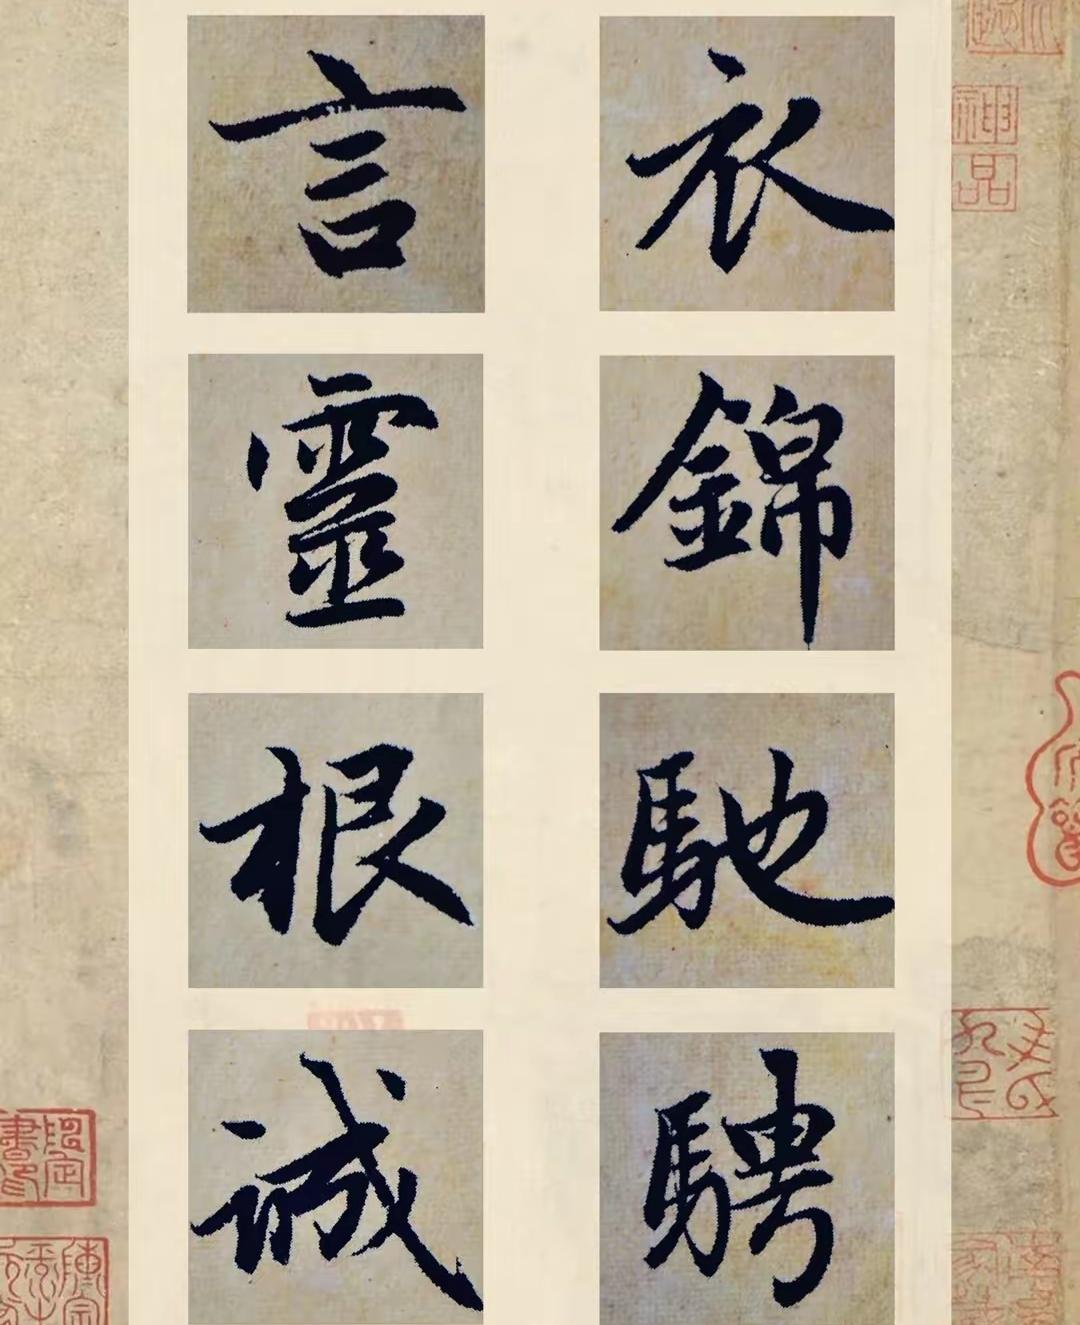 衣錦馳騁
言靈根誠
神品